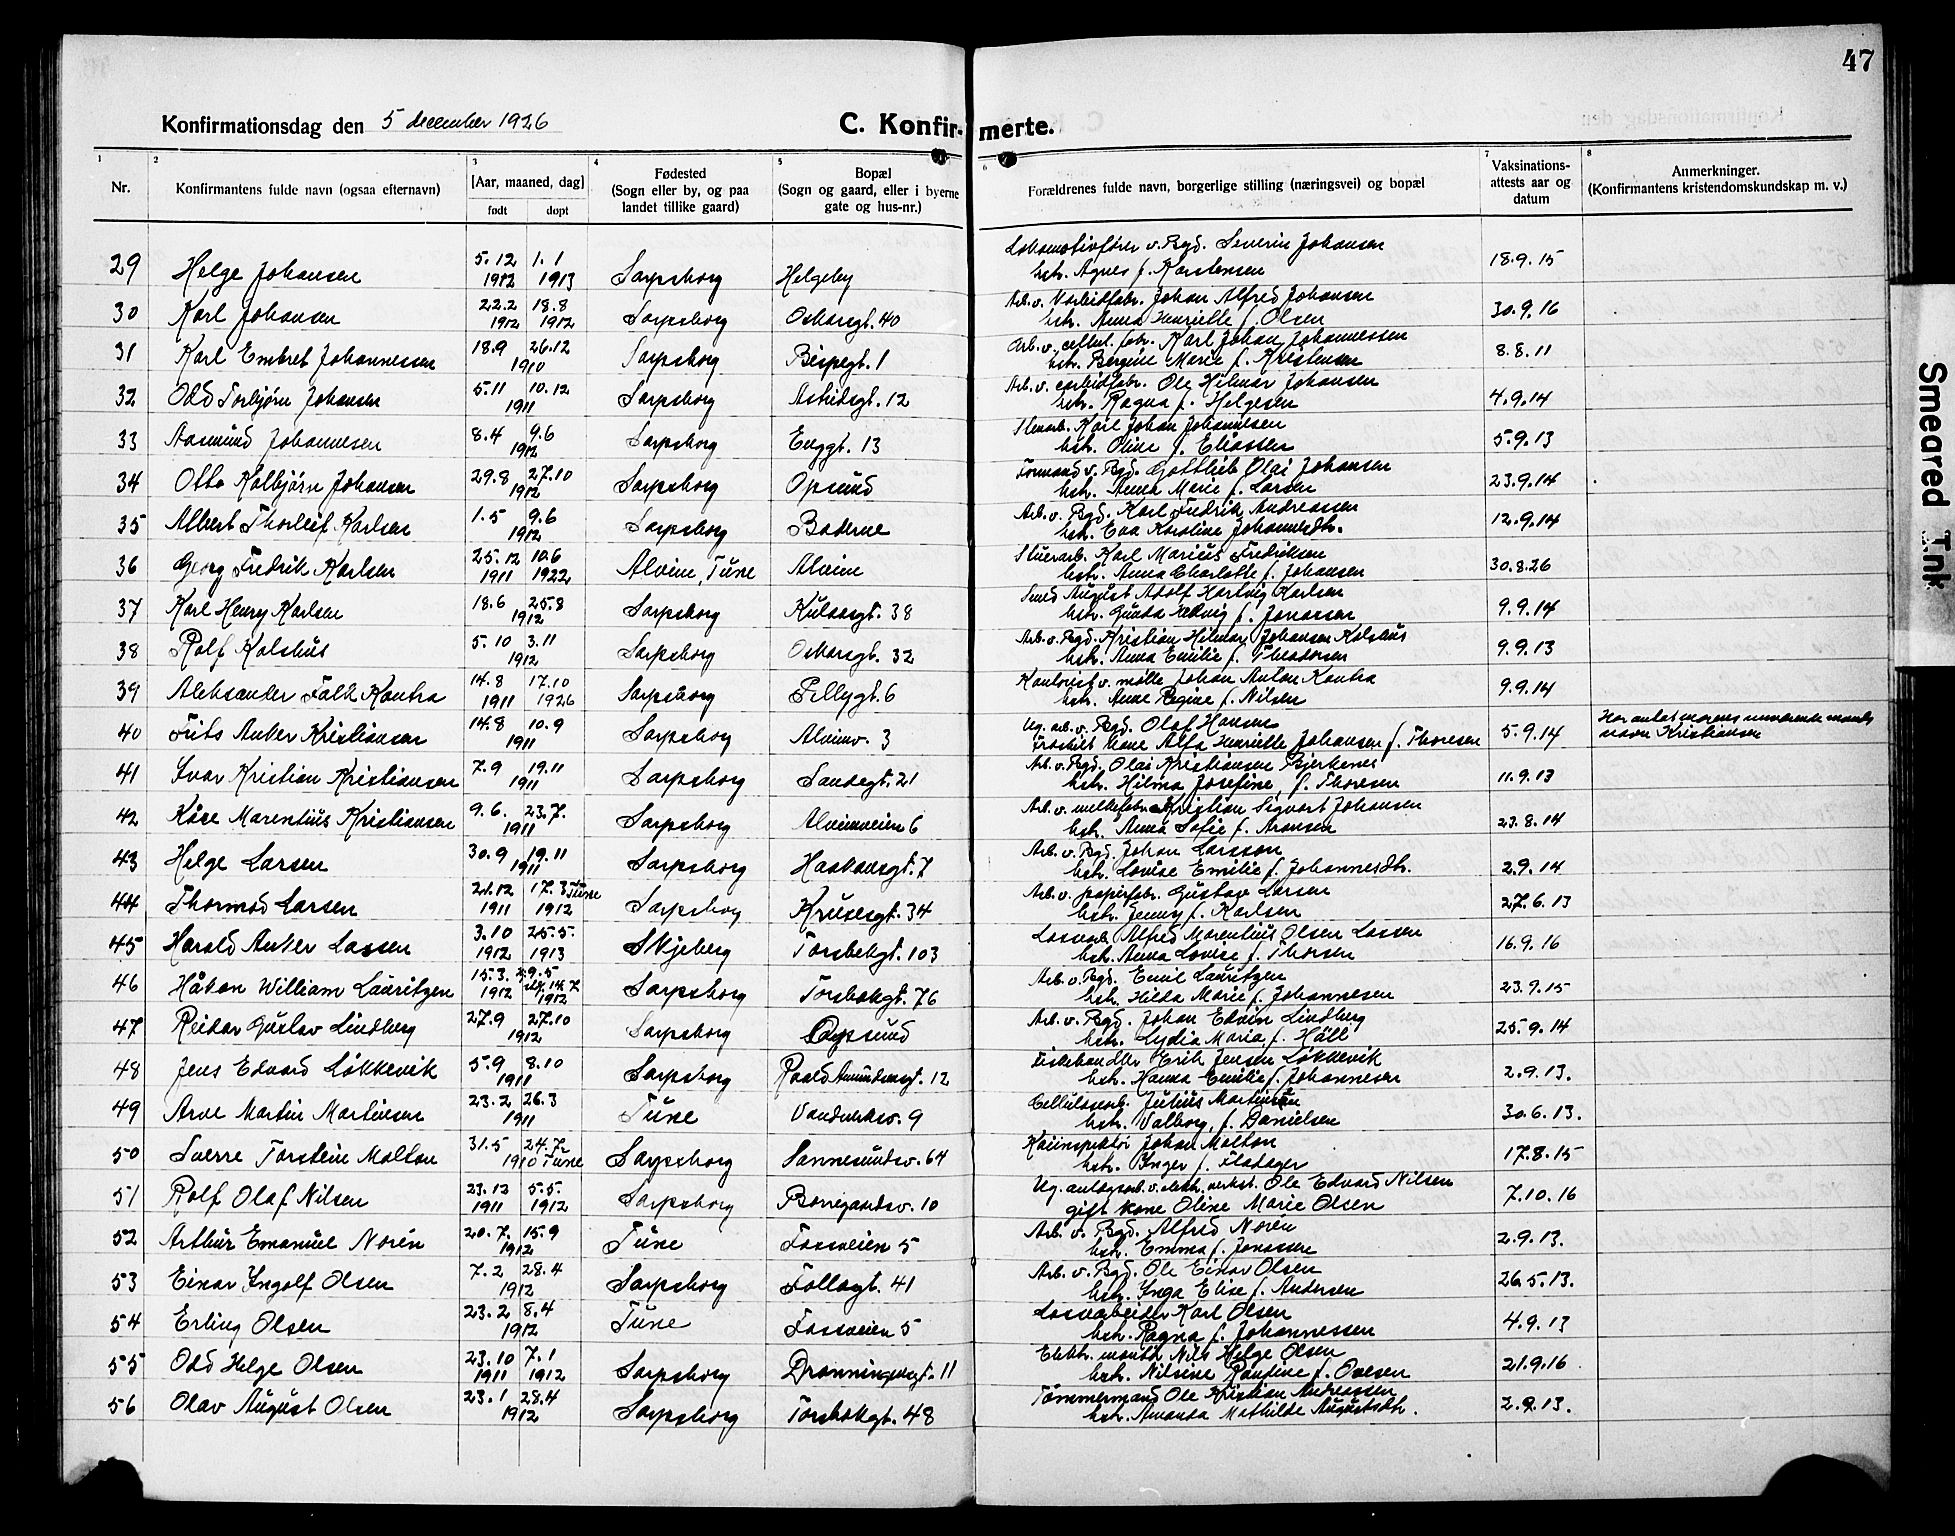 47
Konfirmationsdag den 5 december 1926
C. Konfirmerte.
1 2 3 4 5 6 7 8
Nr.
Konfirmantens fulde navn (ogsaa efternavn)
[Aar, maaned, dag]
født døpt
Fødested
(Sogn eller by, og paa
landet tillike gaard)
Bopæl
(Sogn og gaard, eller i byerne
gate og hus-nr.)
Forældrenes fulde navn, borgerlige stilling (næringsvei) og bopæl
Vaksinations-
attests aar og
datum
Anmerkninger.
(Konfirmantens kristendomskundskap m. v.)
29 Helge Johansen 5.12 1912 1.1 1913 Sarpsborg Helgeby Lokomotivfører v. Bgd. Severin Johansen
hstr. Agnes f. Karstensen 18.9.15
30 Karl Johansen 22.2 1912 18.8 1912 Sarpsborg Oskarsgt. 40 Arb. v. Johan Alfred Johansen
hstr. Anna Henriette f. Olsen 30.9.16
31 Karl Embret Johannessen 18.9 26.12 1910 Sarpsborg Bispegt. 1 Arb. v. cellul. fabr. Karl Johan Johannessen
hstr. Bergine Marie f. Kristensen 8.8.11
32 Odd Torbjørn Johansen 5.11 10.12 1911 Sarpsborg Astridsgt. 12 Arb. v. carbidfabr. Ole Hilmar Johansen
hstr. Ragna f. Helgesen 4.9.14
33 Aasmund Johannesen 8.4 9.6 1912 Sarpsborg Enggt. 13 Stenarb. Karl Johan Johannesen
hstr. Oline f. Eliassen 5.9.13
34 Otto Kolbjørn Johansen 29.8 27.10 1912 Sarpsborg Opsund Formand v. Bgd. Gottlieb Olai Johansen
hstr. Anna Marie f. Larsen 23.9.14
35 Albert Thorleif Karlsen 1.5 9.6 1912 Sarpsborg Boderne Arb. v. Bgd. Karl Fredrik Andreassen
hstr. Eva Karoline Johannesdtr. 12.9.14
36 Georg Fredrik Karlsen 25.12 1911 10.6 1922 Alvim, Tune Alvim Karl Marius Fredriksen
hstr. Anna Charlotte f. Johansen 30.8.26
37 Karl Henry Karlsen 18.6 25.8 1912 Sarpsborg Kulaasgt. 38 Smed August Adolf Hartvig Karlsen
hstr. Gunda Hedvig f. Jonassen 9.9.14
38 Rolf Kolshus 5.10 3.11 1912 Sarpsborg Oskarsgt. 32 Arb. v. Bgd. Kristian Hilmar Johansen Kolshus
hstr. Anna Emilie f. Theodorsen 9.9.13
39 Aleksander Falk Kontra 14.8 1911 17.10 1926 Sarpsborg Pellygt. 6 Kontorist v. mølle Johan Anton Kontra
hstr. Anne Regine f. Nilsen 9.9.14
40 Frits Anker Kristiansen 14.8 10.9 1911 Sarpsborg Alvimv. 3 Ug. arb. v. Bgd. Olaf Hansen
Fraskilt kone Alfa Henriette Johansen f. Thoresen 5.9.14 Har antat morens nuværende mands
navn Kristiansen
41 Ivar Kristian Kristiansen 7.9 19.11 1911 Sarpsborg Sandsgt. 21 Arb. v. Bgd. Olai Kristiansen Bjerknes
hstr. Hilma Josefine, f. Thoresen 11.9.13
42 Kåre Marentius Kristiansen 9.6. 23.7. 1911 Sarpsborg Alvimveien 6 Arb. v. Kristian Sigvart Johansen
hstr. Anna Sofie f. Aronsen 23.8.14
43 Helge Larsen 30.9 19.11 1911 Sarpsborg Haakonsgt. 7 Arb. v. Bgd. Johan Larsson
hstr. Lovise Emilie f. Johannesdtr. 2.9.14
44 Thormod Larsen 21.12 1911 17.3 Tune 1912 Sarpsborg Krusesgt. 34 Arb. v. papirfabr. Gustav Larsen
hstr. Jenny f. Karlsen 27.6.13
45 Harald Anker Lassen 3.10 1912 25.5. 1913 Skjeberg Torsbekgt. 103 Løsarb. Alfred Marentius Olsen Lassen
hstr. Anna Lovise f. Thorsen 16.9.16
46 Håkon William Lauritzen 15.3. 1912 29.5 14.7 1912 Sarpsborg Torsbekgt. 76 Arb. v. Bgd. Emil Lauritzen
hstr. Hilda Marie f. Johannesen 23.9.15
47 Reidar Gustav Lindberg 27.9 27.10 1912 Sarpsborg Opsund Arb. v. Bgd. Johan Edvin Lindberg
hstr. Lydia Maria f. Häll 25.9.14
48 Jens Edvard Løkkevik 5.9 8.10 1911 Sarpsborg Roald Amundsensgt. 12 Fiskehandler Erik Jensen Løkkevik
hstr. Hanna Emilie f. Johannesen 2.9.13.
49 Arne Martin Martinsen 23.2 26.3 1911 Tune Vandverksv. 9 Cellulosearb. Julius Martinsen
hstr. Valborg, f. Danielsen 30.6.13.
50 Sverre Torstein Molton 31.5 24.7. 1910 Tune Sarpsborg Sannesundsv. 64 Kaiinspektør Johan Molton
hstr. Inger f. Fladager 17.8.15
51 Rolf Olaf Nilsen 23.12 1911 5.5. 1912 Sarpsborg Borregaardsv. 10 Ug. anlægsarb. v. elektr. verkst. Ole Edvard Nilsen
gift kone Oline Marie Olsen 7.10.16
52 Arthur Emanuel Norén 20.7. 15.9 1912 Tune Fossveien 5 Arb. v. Bgd. Alfred Norén
hstr. Emma f. Jonassen 2.9.13.
53 Einar Ingolf Olsen 7.2 28.4 1912 Sarpsborg Follogt. 41 Arb. v. Bgd. Ole Einar Olsen
hstr. Inga Elise f. Andersen 26.5.13.
54 Erling Olsen 23.2 8.4 1912 Tune Fossveien 5 Løsarbeider Karl Olsen
hstr. Ragna f. Johannessen 4.9.13
55 Odd Helge Olsen 23.10 1911 7.1 1912 Sarpsborg Dronningensgt. 11 Elektr. montør Nils Helge Olsen
hstr. Nilsine Randine f. Ovesen 21.9.16
56 Olav August Olsen 23.1 28.4 1912 Sarpsborg Torsbekgt. 48 Tømmermand Ole Kristian Andreassen
hstr. Amanda Mathilde Augustsdtr. 2.9.13.
Smeared Ink